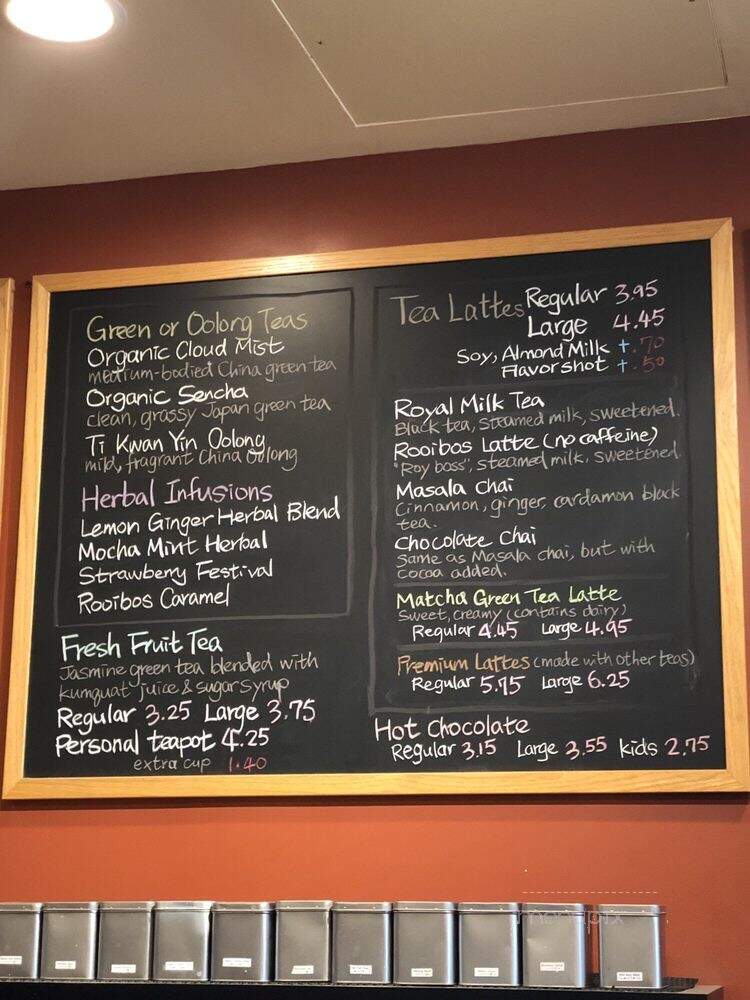 Green or Oolong Teas
Organic Cloud Mist
medium-bodied China green tea
Organic Sencha
clean, grassy Japan green tea
Ti Kwan Yin Oolong
mild, fragrant China Oolong
Herbal Infusions
Lemon Ginger Herbal Blend
Mocha Mint Herbal
Strawberry Festival
Rooibos Caramel
Fresh Fruit Tea
Jasmine green tea blended with
kumquat juice & sugar syrup
Regular 3.25 Large 3.75
Personal teapot 4.25
extra cup 1.40
Tea Lattes Regular 3.95
Large 4.45
Soy, Almond Milk +.70
Flavor shot +.50
Royal Milk Tea
Black tea, steamed milk, sweetened.
Rooibos Latte (no caffeine)
"Roy boss", steamed milk, sweetened.
Masala Chai
Cinnamon, ginger, cardamon black
tea.
Chocolate Chai
Same as Masala chai, but with
cocoa added.
Matcha Green Tea Latte
Sweet, creamy (contains dairy)
Regular 4.45 Large 4.95
Premium Lattes (made with other teas)
Regular 5.75 Large 6.25
Hot Chocolate
Regular 3.15 Large 3.55 kids 2.75